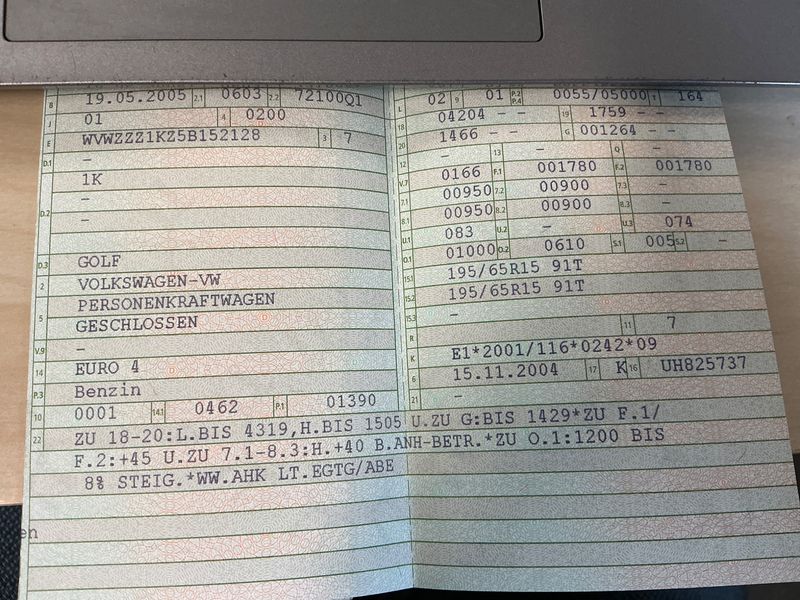 B 19.05.2005 2.1 0603 2.2 72100Q1
J 01 4 0200
E WVWZZZ1KZ5B152128 3 7
D.1 -
1K
D.2 -
-
D.3 GOLF
2 VOLKSWAGEN-VW
5 PERSONENKRAFTWAGEN
GESCHLOSSEN
V.9 -
14 EURO 4
P.3 Benzin
10 0001 14.1 0462 P.1 01390
L 02 9 01 P.2 P.4 0055/05000 T 164
18 04204 - - 19 1759 - -
20 1466 - - G 001264 - -
12 - 13 - Q -
V.7 0166 F.1 001780 F.2 001780
7.1 00950 7.2 00900 7.3 -
8.1 00950 8.2 00900 8.3 -
U.1 083 U.2 - U.3 074
O.1 01000 O.2 0610 S.1 005 S.2 -
15.1 195/65R15 91T
15.2 195/65R15 91T
15.3 -
R 11 7
K E1*2001/116*0242*09
6 15.11.2004 17 K 16 UH825737
21 -
22 ZU 18-20:L.BIS 4319,H.BIS 1505 U.ZU G:BIS 1429*ZU F.1/
F.2:+45 U.ZU 7.1-8.3:H.+40 B.ANH-BETR.*ZU O.1:1200 BIS
8% STEIG.*WW.AHK LT.EGTG/ABE
en